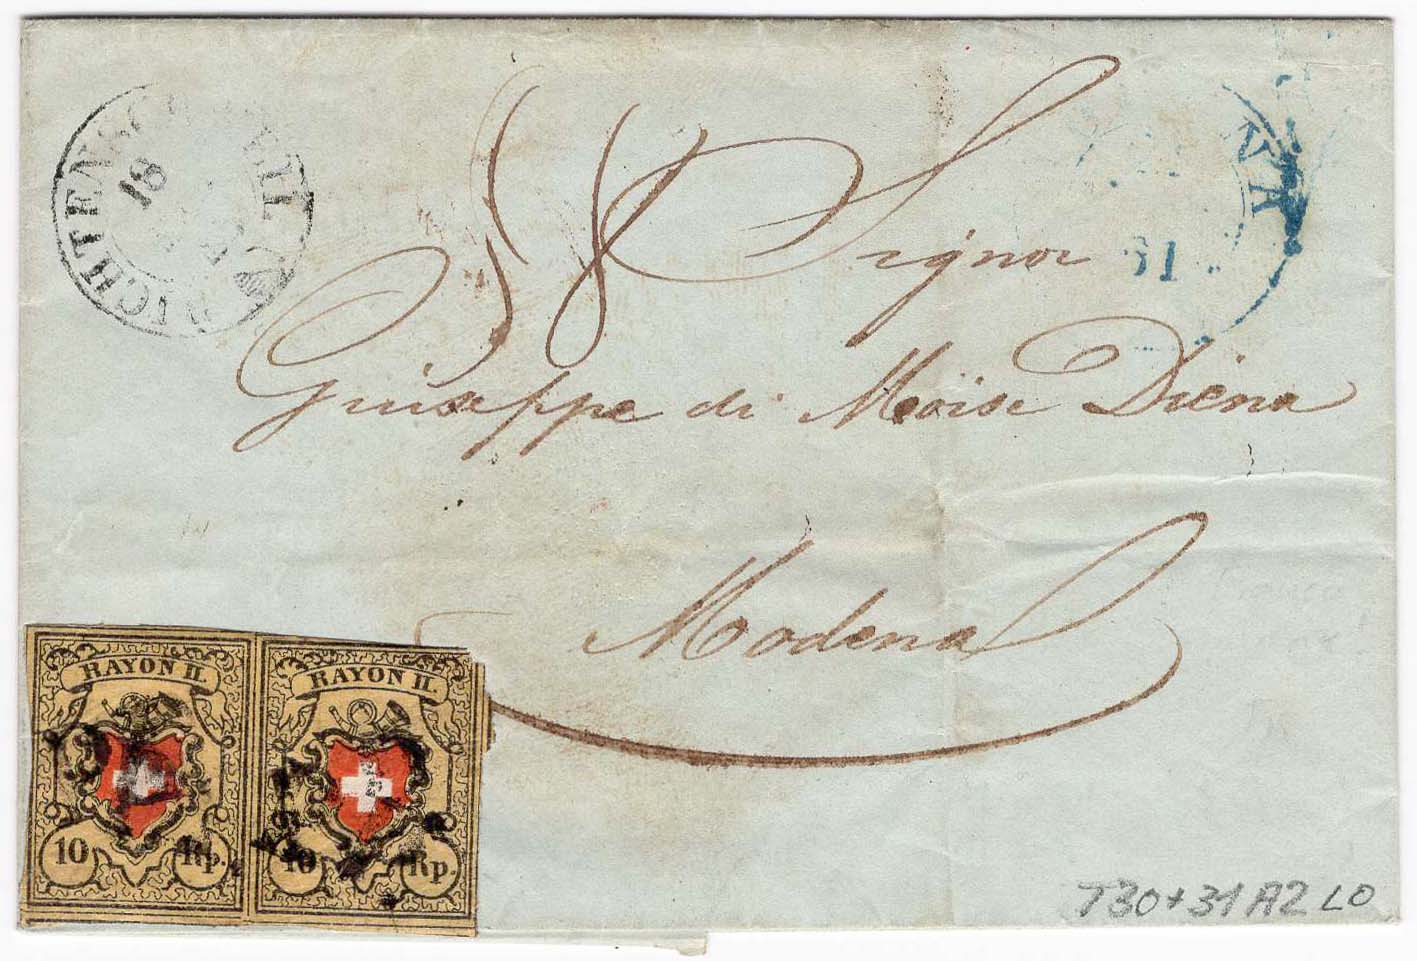 18
Signor
Giuseppe di Moïse Diena
Modena
RAYON II.
10 Rp.
RAYON II.
10 Rp.
T30+31 A2 LO